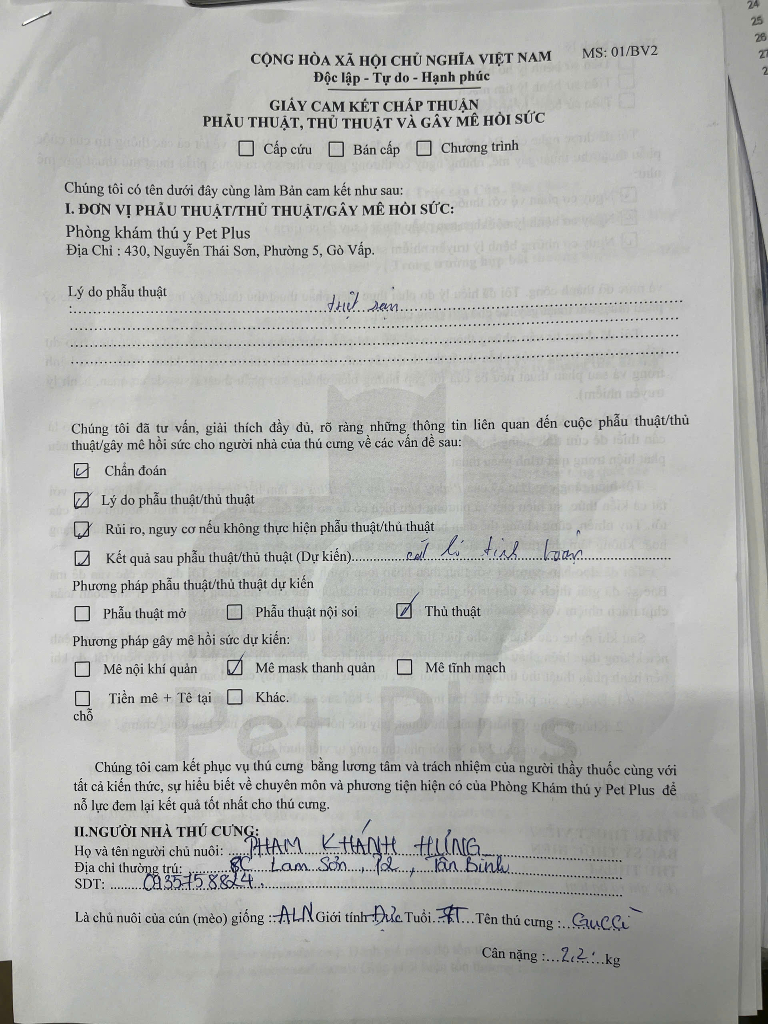 CỘNG HÒA XÃ HỘI CHỦ NGHĨA VIỆT NAM
MS: 01/BV2
Độc lập - Tự do - Hạnh phúc
GIẤY CAM KẾT CHẤP THUẬN
PHẪU THUẬT, THỦ THUẬT VÀ GÂY MÊ HỒI SỨC
☐ Cấp cứu ☐ Bán cấp ☐ Chương trình
Chúng tôi có tên dưới đây cùng làm Bản cam kết như sau:
I. ĐƠN VỊ PHẪU THUẬT/THỦ THUẬT/GÂY MÊ HỒI SỨC:
Phòng khám thú y Pet Plus
Địa Chỉ : 430, Nguyễn Thái Sơn, Phường 5, Gò Vấp.
Lý do phẫu thuật
: triệt sản
Chúng tôi đã tư vấn, giải thích đầy đủ, rõ ràng những thông tin liên quan đến cuộc phẫu thuật/thủ
thuật/gây mê hồi sức cho người nhà của thú cưng về các vấn đề sau:
☑ Chẩn đoán
☑ Lý do phẫu thuật/thủ thuật
☑ Rủi ro, nguy cơ nếu không thực hiện phẫu thuật/thủ thuật
☑ Kết quả sau phẫu thuật/thủ thuật (Dự kiến) tinh hoàn
Phương pháp phẫu thuật/thủ thuật dự kiến
☐ Phẫu thuật mở ☐ Phẫu thuật nội soi ☑ Thủ thuật
Phương pháp gây mê hồi sức dự kiến:
☐ Mê nội khí quản ☑ Mê mask thanh quản ☐ Mê tĩnh mạch
☐ Tiền mê + Tê tại ☐ Khác.
chỗ
Pet Plus
Chúng tôi cam kết phục vụ thú cưng bằng lương tâm và trách nhiệm của người thầy thuốc cùng với
tất cả kiến thức, sự hiểu biết về chuyên môn và phương tiện hiện có của Phòng Khám thú y Pet Plus để
nỗ lực đem lại kết quả tốt nhất cho thú cưng.
II.NGƯỜI NHÀ THÚ CƯNG:
Họ và tên người chủ nuôi: PHẠM KHÁNH HƯNG
Địa chỉ thường trú: 8C Lam Sơn, P2, Tân Bình
SDT: 0935758824
Là chủ nuôi của cún (mèo) giống : ALN Giới tính Đực Tuổi Tên thú cưng : GUCCI
Cân nặng : 2,2 kg
24
25
26
27
2